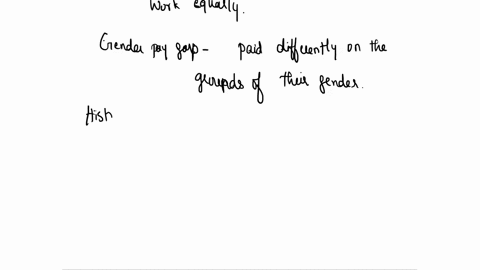 Work equally.
Gender pay gap - paid differently on the
grounds of their gender.
Hist